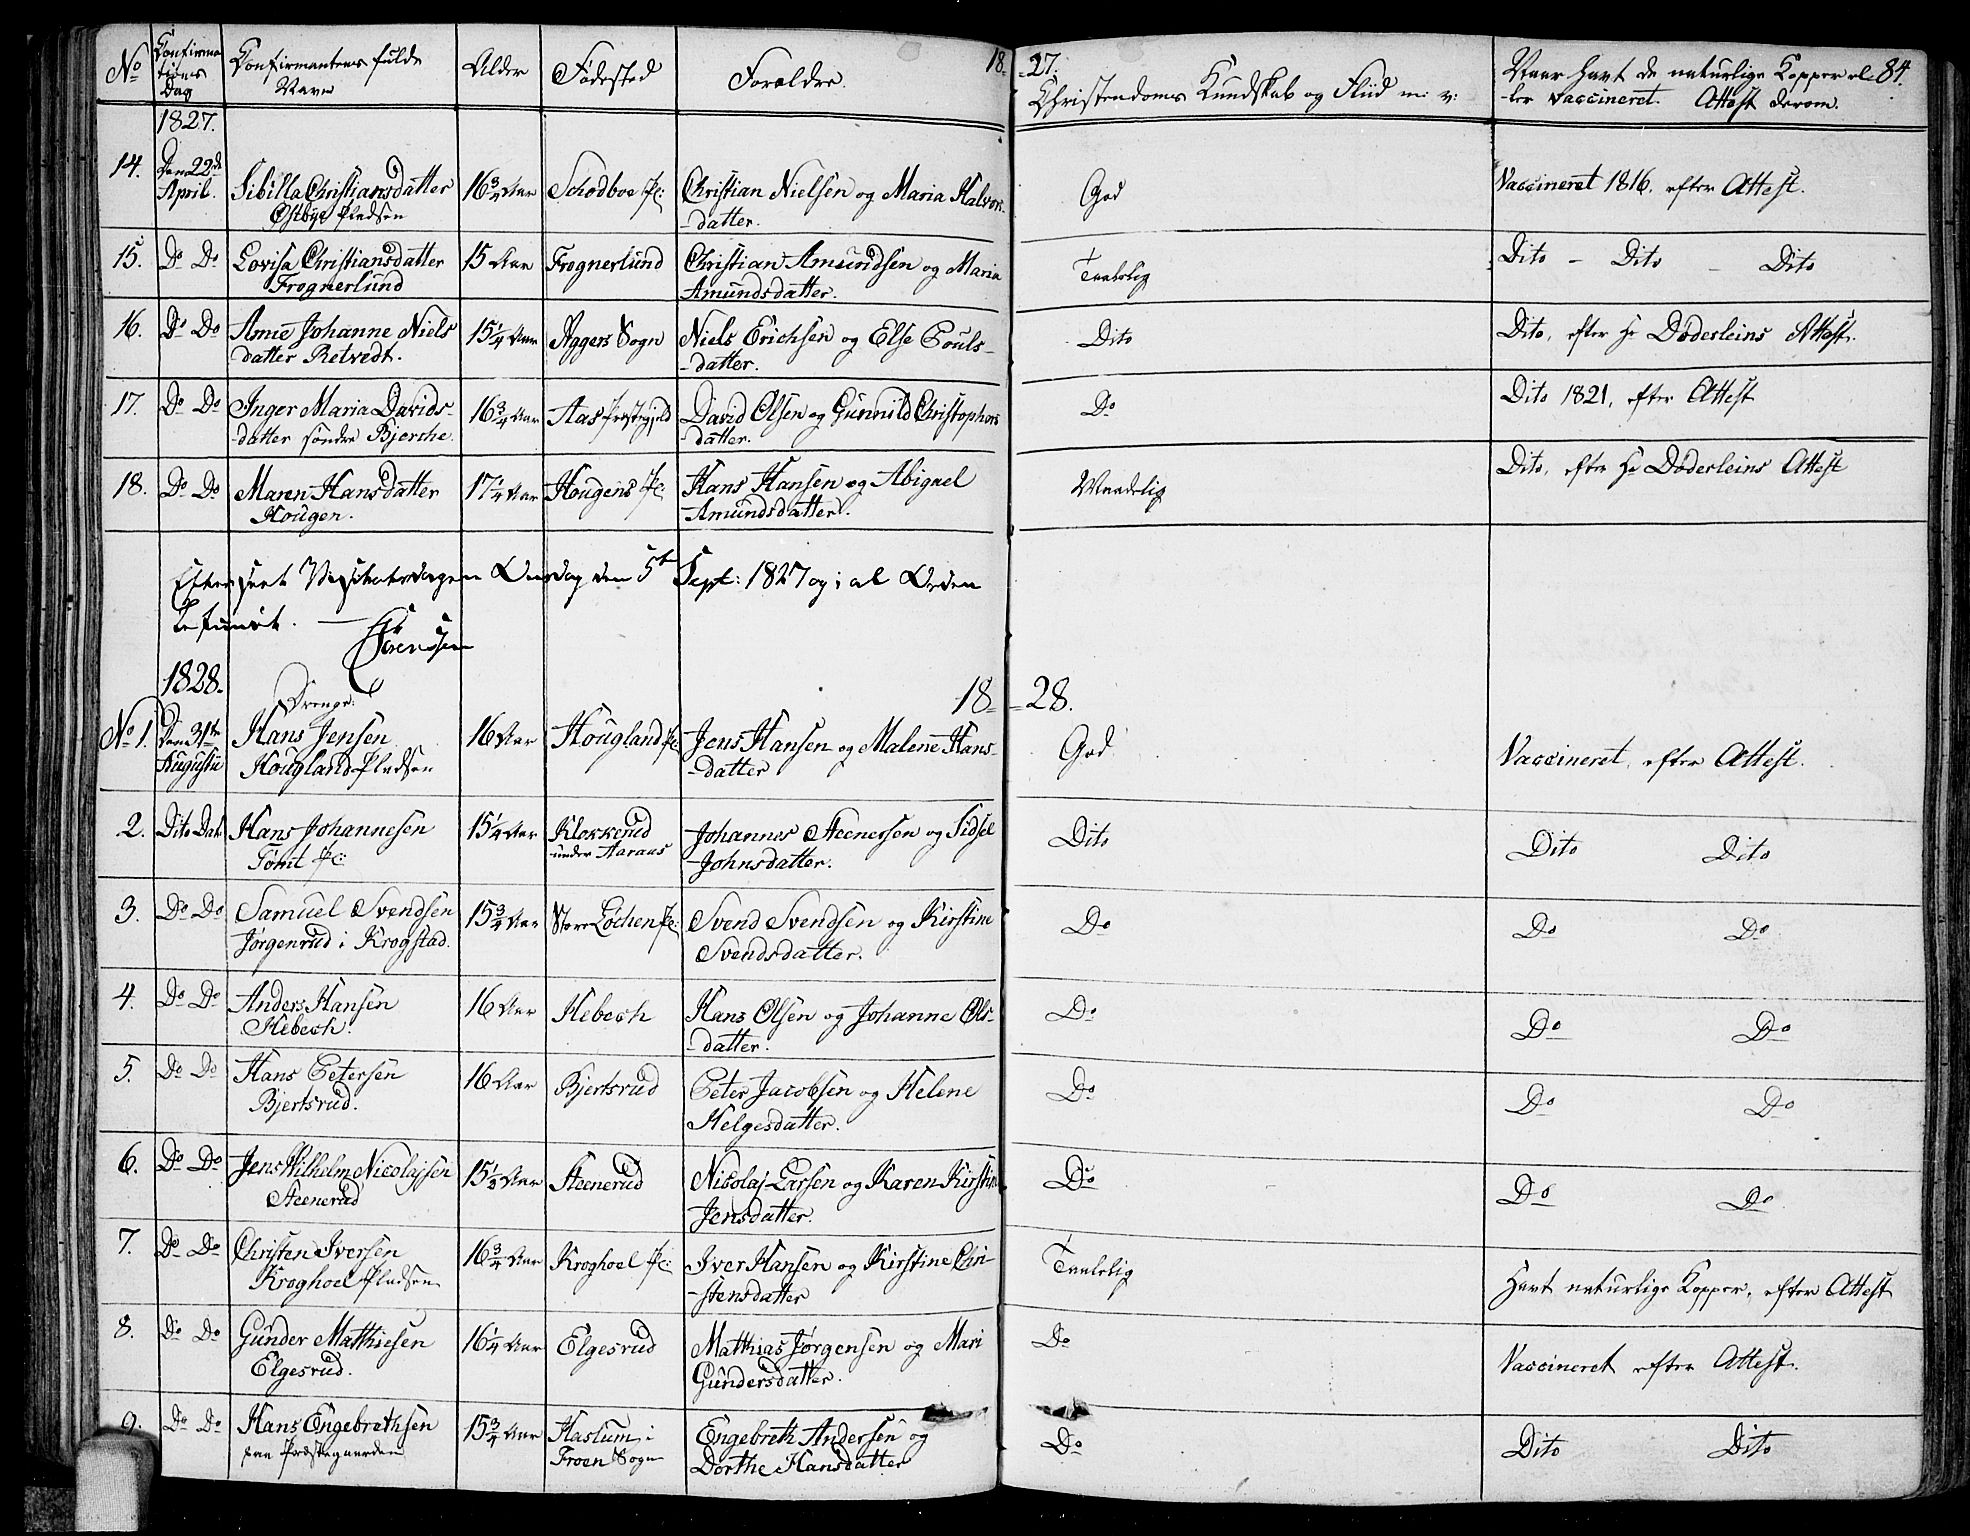 No Confirma Confirmantens fulde Alder Fødested Forældre. 18- -27. Christendoms Kundskab og Fliid m: v: Naar Havt de naturlige Kopper el- 84.
tions Navn -ler vaccineret. Attest derom.
Dag
1827.
14. Den 22de Sibilla Christiansdatter 16 3/4 Aar Schodboe Pl: Christian Nielsen og Maria Halvors- God Vaccineret 1816, efter Attest.
April. Østbye Pladsen -datter.
15. Do Do Lovisa Christiansdatter 15 Aar Frognerlund Christian Amundsen og Maria Taalelig Dito - Dito - Dito
Frognerlund Amundsdatter.
16. Do Do Anne Johanne Niels 15 1/4 Aar Aggers Sogn Niels Erichsen og Else Pouls- Dito Dito, efter Hr Døderleins Attest.
datter Retvedt. -datter.
17. Do Do Inger Maria Davids- 16 3/4 Aar Aas Præstegjeld David Olsen og Gunnild Christophers Do Dito 1821, efter Attest
-datter søndre Bjerche. -datter.
18. Do Do Maren Hansdatter 17 1/4 Aar Hougens Pl: Hans Hansen og Abigael Maadelig Dito, efter Hr Døderleins Attest
Hougen. Amundsdatter.
Efterseet Visitatsdagen Onsdag den 5te Sept: 1827 og i al Orden
befundet. — Sørenssen
1828. Drenge: 18- -28.
No 1. Den 31te Hans Jensen 16 Aar Hougland Pl: Jens Hansen og Malene Hans- God Vaccineret, efter Attest.
Augusti Hougland Pladsen -datter
2. Dito Dato Hans Johannesen 15 1/4 Aar Klokkerud Johannes Steenersen og Sidsel Dito Dito Dito
Tomt Pl: under Aaraas Johnsdatter.
3. Do Do Samuel Svendsen 15 3/4 Aar Store Løchen Pl: Svend Svendsen og Kirstine Do Do Do
Jørgenrud i Krogstad. Svendsdatter.
4. Do Do Anders Hansen 16 Aar Hebech Hans Olsen og Johanne Ols- Do Do Do
Hebech. -datter.
5. Do Do Hans Petersen 16 Aar Bjertsrud Peter Jacobsen og Helene Do Do Do
Bjertsrud. Helgesdatter.
6. Do Do Jens Wilhelm Nicolajsen 15 1/2 Aar Steenerud Nicolaj Larsen og Karen Kirstine Do Do Do
Steenerud Jensdatter.
7. Do Do Christen Iversen 16 3/4 Aar Kroghoel Pl: Iver Hansen og Kirstine Chri- Taalelig Havt naturlige Kopper, efter Attest
Kroghoel Pladsen -stensdatter
8. Do Do Gunder Mathiesen 16 1/4 Aar Elgesrud Mathias Jørgensen og Mari Do Vaccineret efter Attest.
Elgesrud. Gundersdatter.
9. Do Do Hans Engebrethsen 15 3/4 Aar Haslum i Engebreth Andersen og Do Dito Dito
paa Præstegaarden Froen Sogn Dorthe Hansdatter